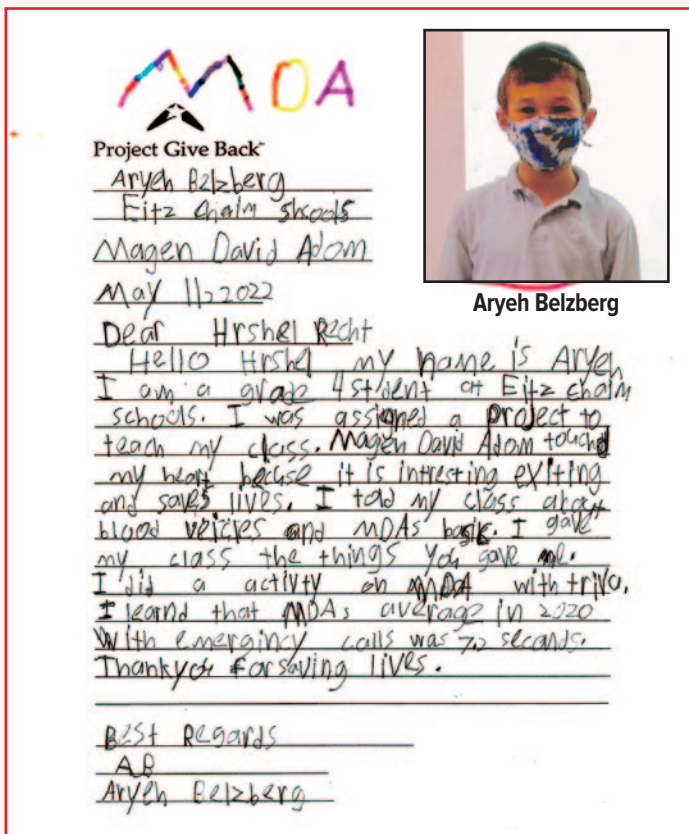 MDA
Project Give Back™
Aryeh Belzberg
Eitz chaim shcools
Magen David Adom
May 11, 2022
Aryeh Belzberg
Dear Hrshel Recht
Hello Hrshel my name is Aryeh
I am a grade 4 stdent at Eitz chaim
schools. I was assigned a project to
teach my class. Magen David Adom touchd
my heart becuse it is intresting exiting
and saves lives. I told my class about
blood veicles and MDAs basic. I gave
my class the things you gave me.
I did a activity on MDA with triva.
I learnd that MDAs average in 2020
with emergincy calls was 7.2 secands.
Thankyou for saving lives.
Best Regards
AB
Aryeh Belzberg